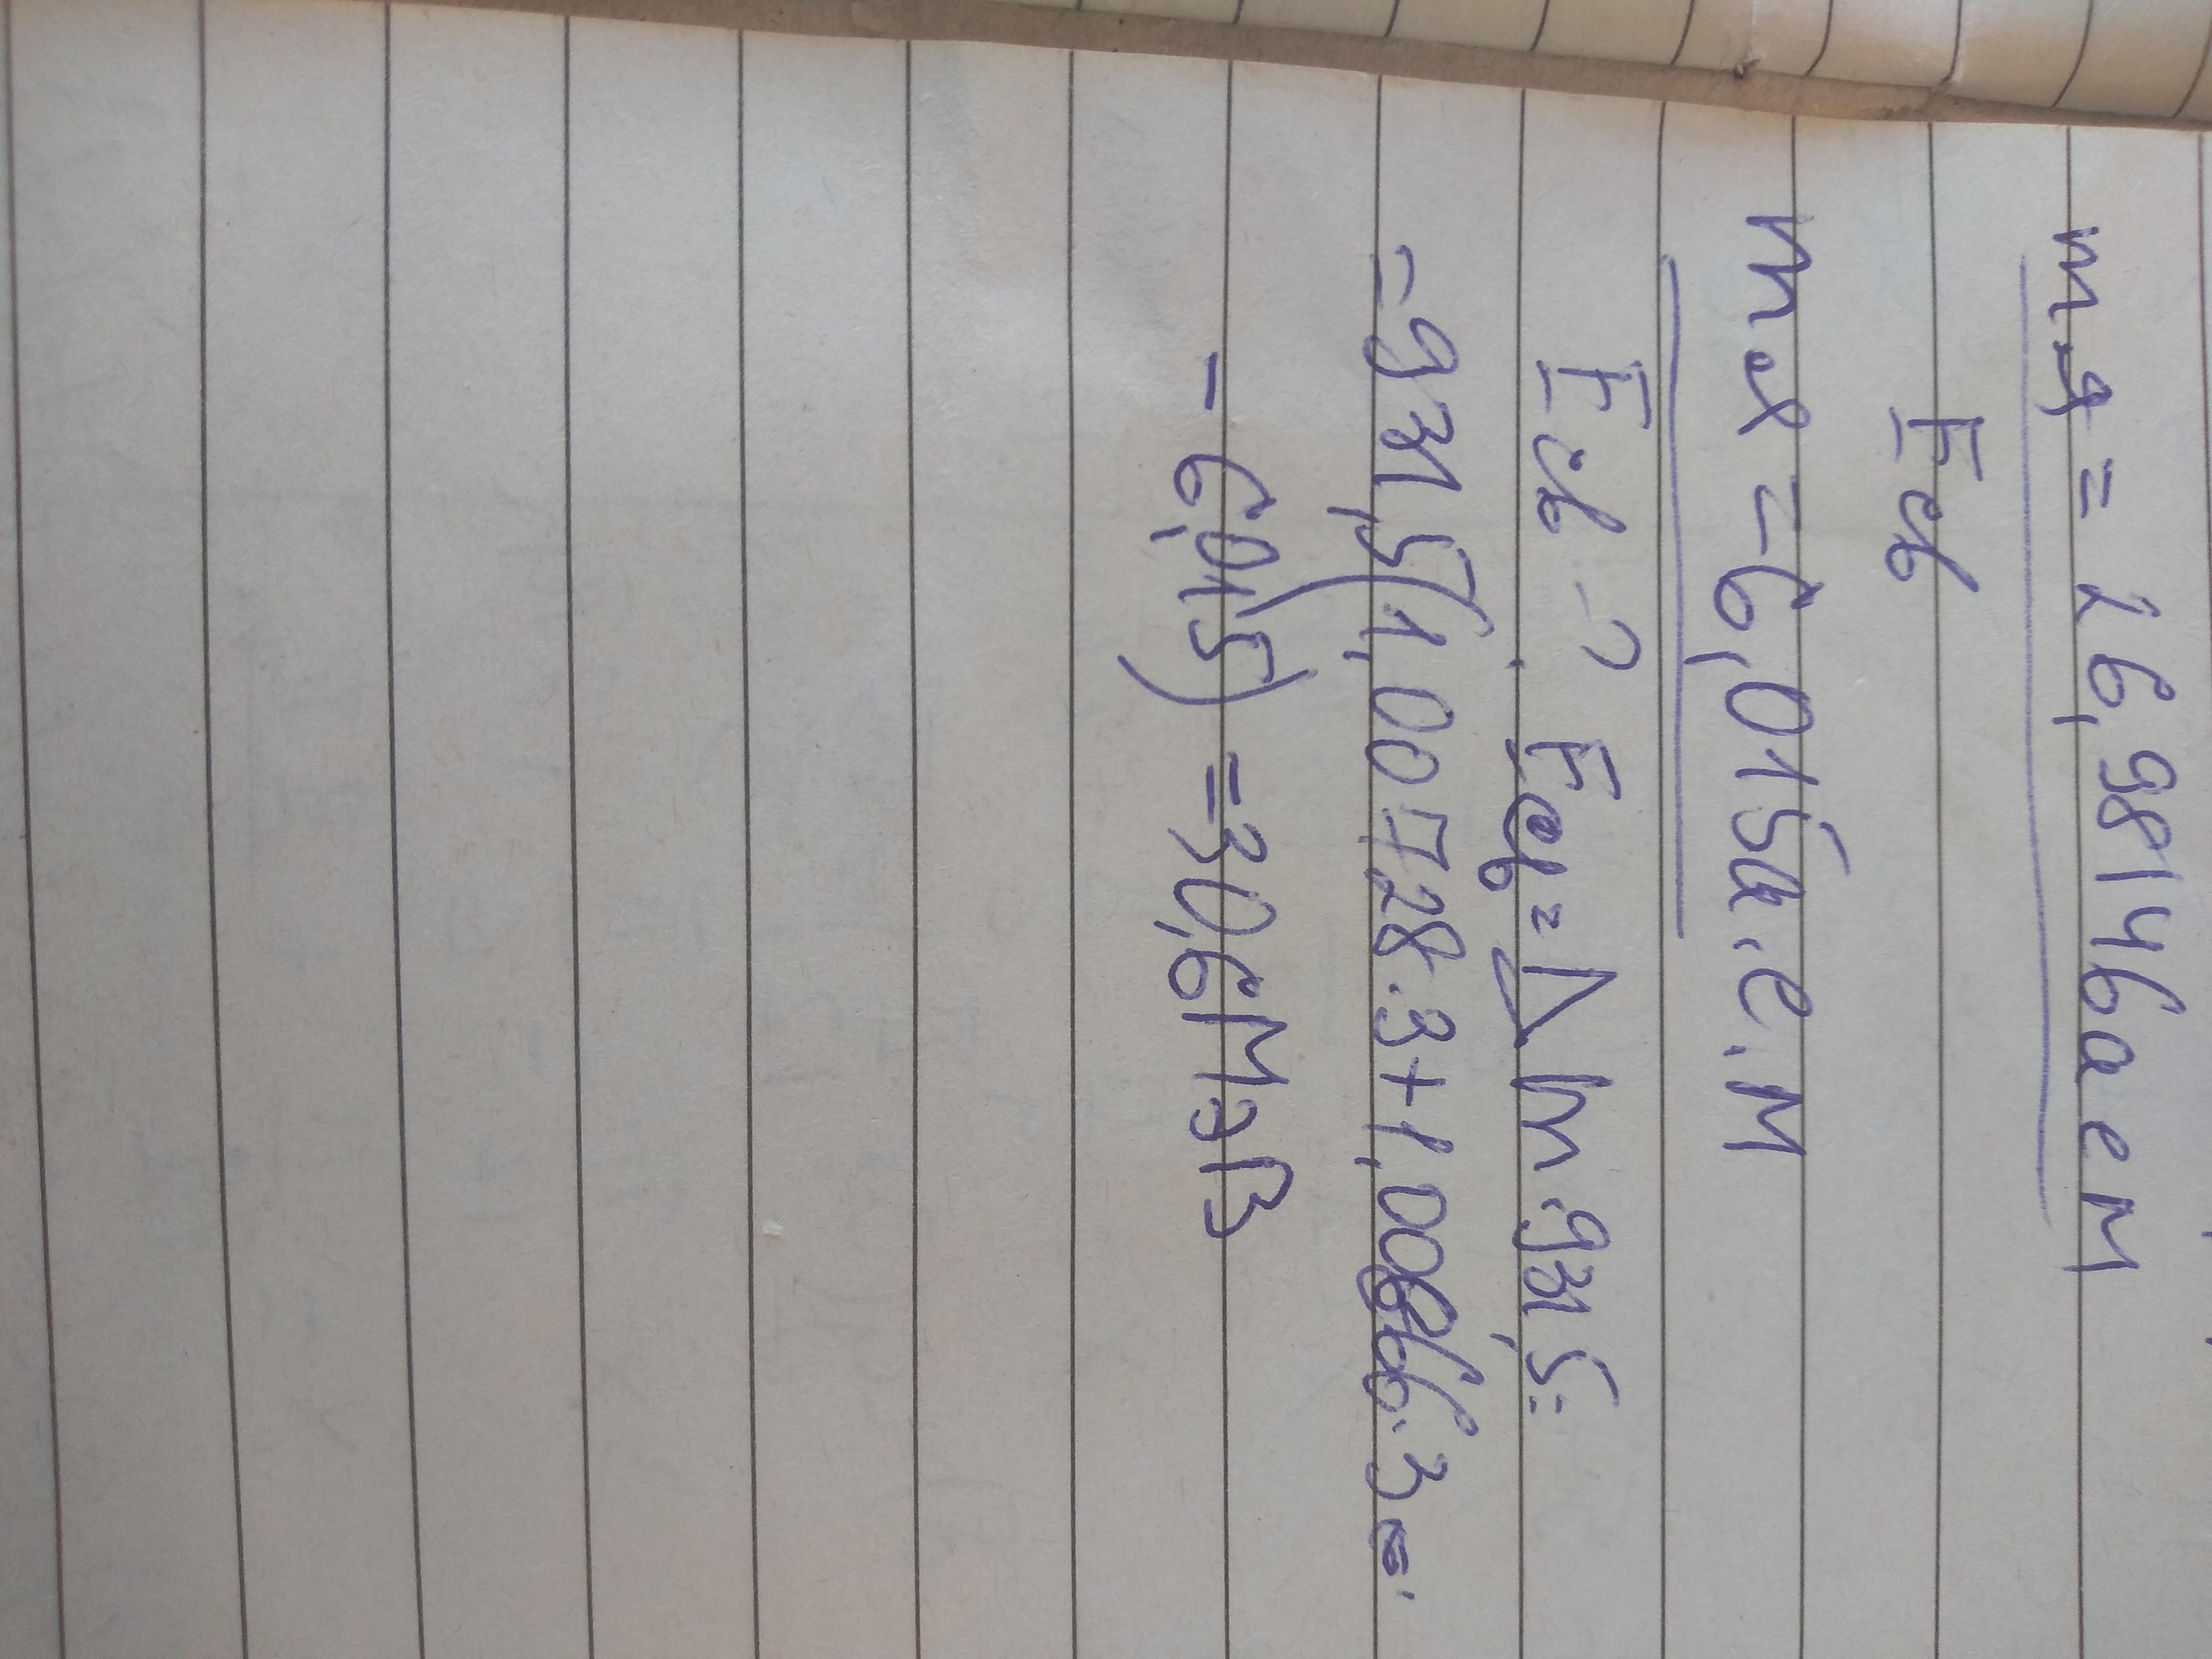 mя = 26,98146аем
Eсв
mя = 6,015а.е.м
Eсв - ? Eсв = Δm·931,5=
= 931,5(1,00728·3+1,00866·3-
- 6,015) = 30,6МэВ